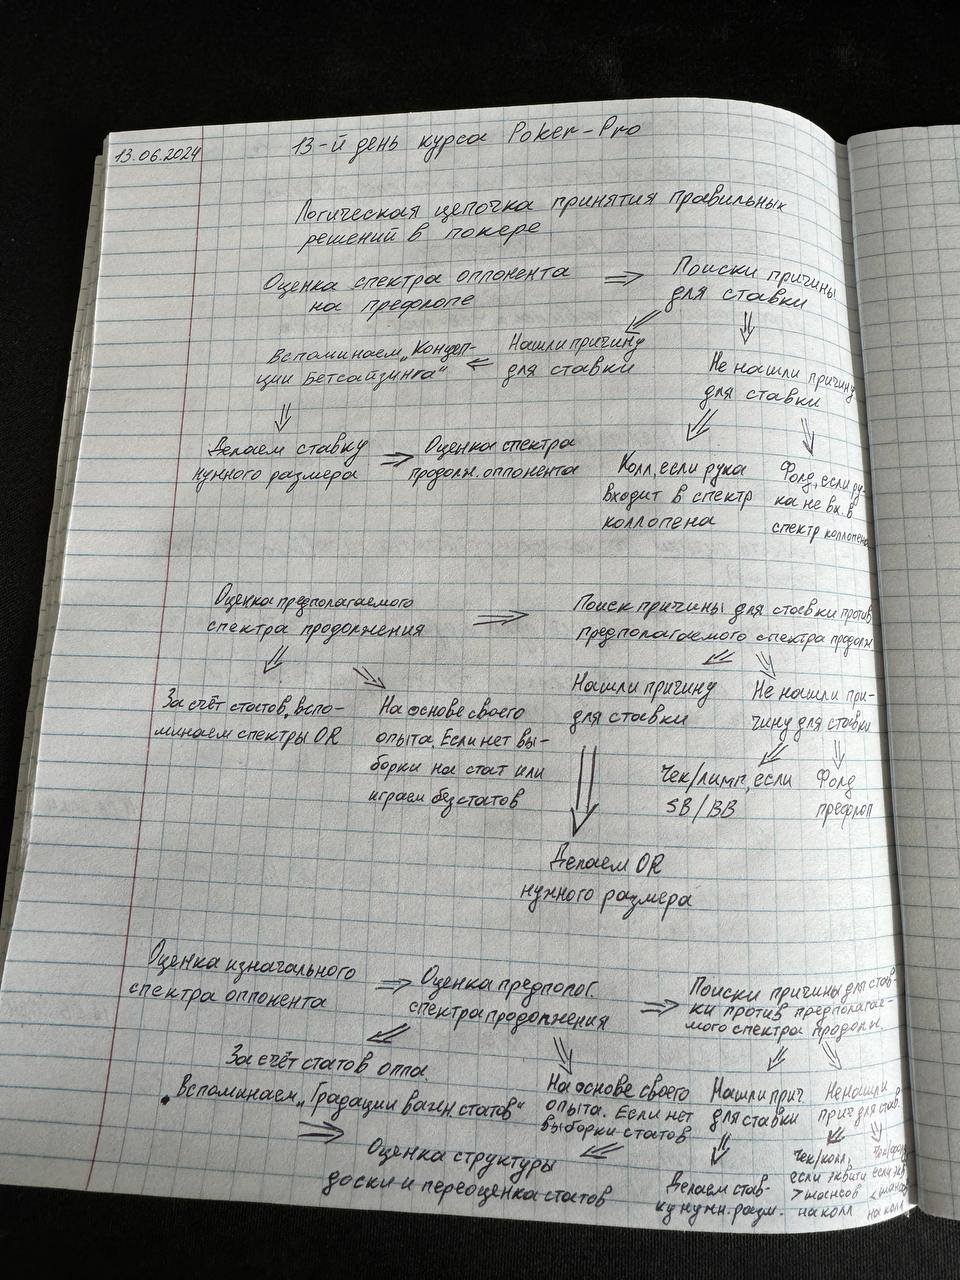 13.06.2024
13-й день курса Poker-Pro
Логическая цепочка принятия правильных
решений в покере
Оценка спектра оппонента
на префлопе
⇒
Поиски причины
для ставки
Нашли причину
для ставки
Не нашли причину
для ставки
Вспоминаем „Концеп-
ции Бетсайзинга“
Делаем ставку
нужного размера
⇒
Оценка спектра
продолж. оппонента
Колл, если рука
входит в спектр
коллопена
Фолд, если ру-
ка не вх. в
спектр коллопена
Оценка предполагаемого
спектра продолжения
⇒
Поиск причины для ставки против
предполагаемого спектра продолж
За счёт статов, вспо-
минаем спектры OR
На основе своего
опыта. Если нет вы-
борки на стат или
играем без статов
Нашли причину
для ставки
Не нашли при-
чину для ставки
Чек/лимп, если
SB/BB
Фолд
префлоп
Делаем OR
нужного размера
Оценка изначального
спектра оппонента
⇒
Оценка предполог.
спектра продолжения
⇒
Поиски причины для став-
ки против предполагае-
мого спектра продолж.
За счёт статов оппа.
Вспоминаем „Градации важн статов“
На основе своего
опыта. Если нет
выборки статов
Нашли прич
для ставки
Не нашли
прич для став.
⇒
Оценка структуры
доски и переоценка статов
Делаем став-
ку нужн. разм.
Чек/колл,
если эквити
> шансов
на колл
Чек/фолд
если экв
< шансов
на колл